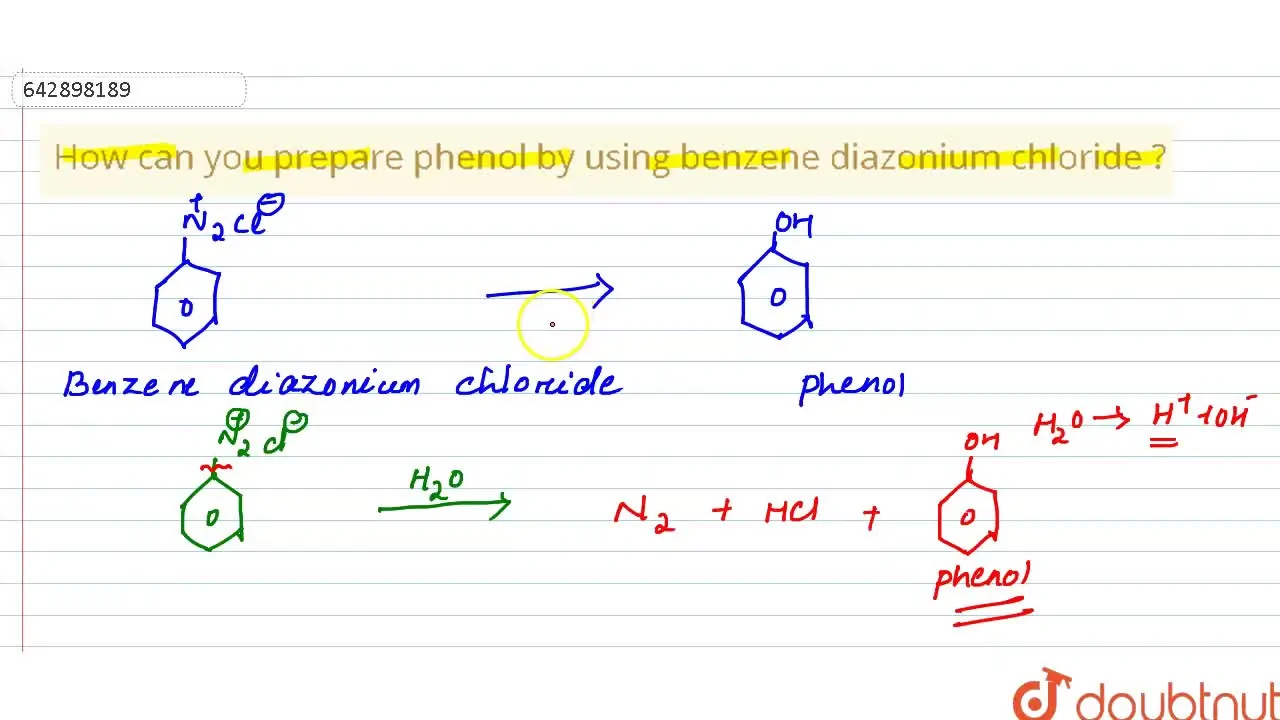 642898189
How can you prepare phenol by using benzene diazonium chloride ?
N₂⁺ Cl⊖
OH
Benzene diazonium chloride
phenol
N₂⊕ Cl⊖
H₂O
N₂ + HCl +
OH
H₂O → H⁺ + OH⁻
phenol
doubtnut